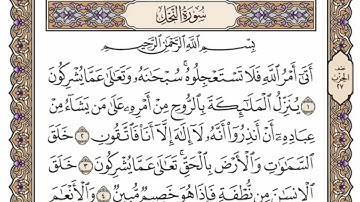 سُورَةُ النَّحْلِ
بِسْمِ اللَّهِ الرَّحْمَٰنِ الرَّحِيمِ
أَتَىٰ أَمْرُ اللَّهِ فَلَا تَسْتَعْجِلُوهُ ۚ سُبْحَانَهُ وَتَعَالَىٰ عَمَّا يُشْرِكُونَ
١ يُنَزِّلُ الْمَلَائِكَةَ بِالرُّوحِ مِنْ أَمْرِهِ عَلَىٰ مَن يَشَاءُ مِنْ
عِبَادِهِ أَنْ أَنذِرُوا أَنَّهُ لَا إِلَٰهَ إِلَّا أَنَا فَاتَّقُونِ ٢ خَلَقَ
السَّمَاوَاتِ وَالْأَرْضَ بِالْحَقِّ ۚ تَعَالَىٰ عَمَّا يُشْرِكُونَ ٣ خَلَقَ
الْإِنسَانَ مِن نُّطْفَةٍ فَإِذَا هُوَ خَصِيمٌ مُّبِينٌ ٤ وَالْأَنْعَامَ
الحزب
٢٧